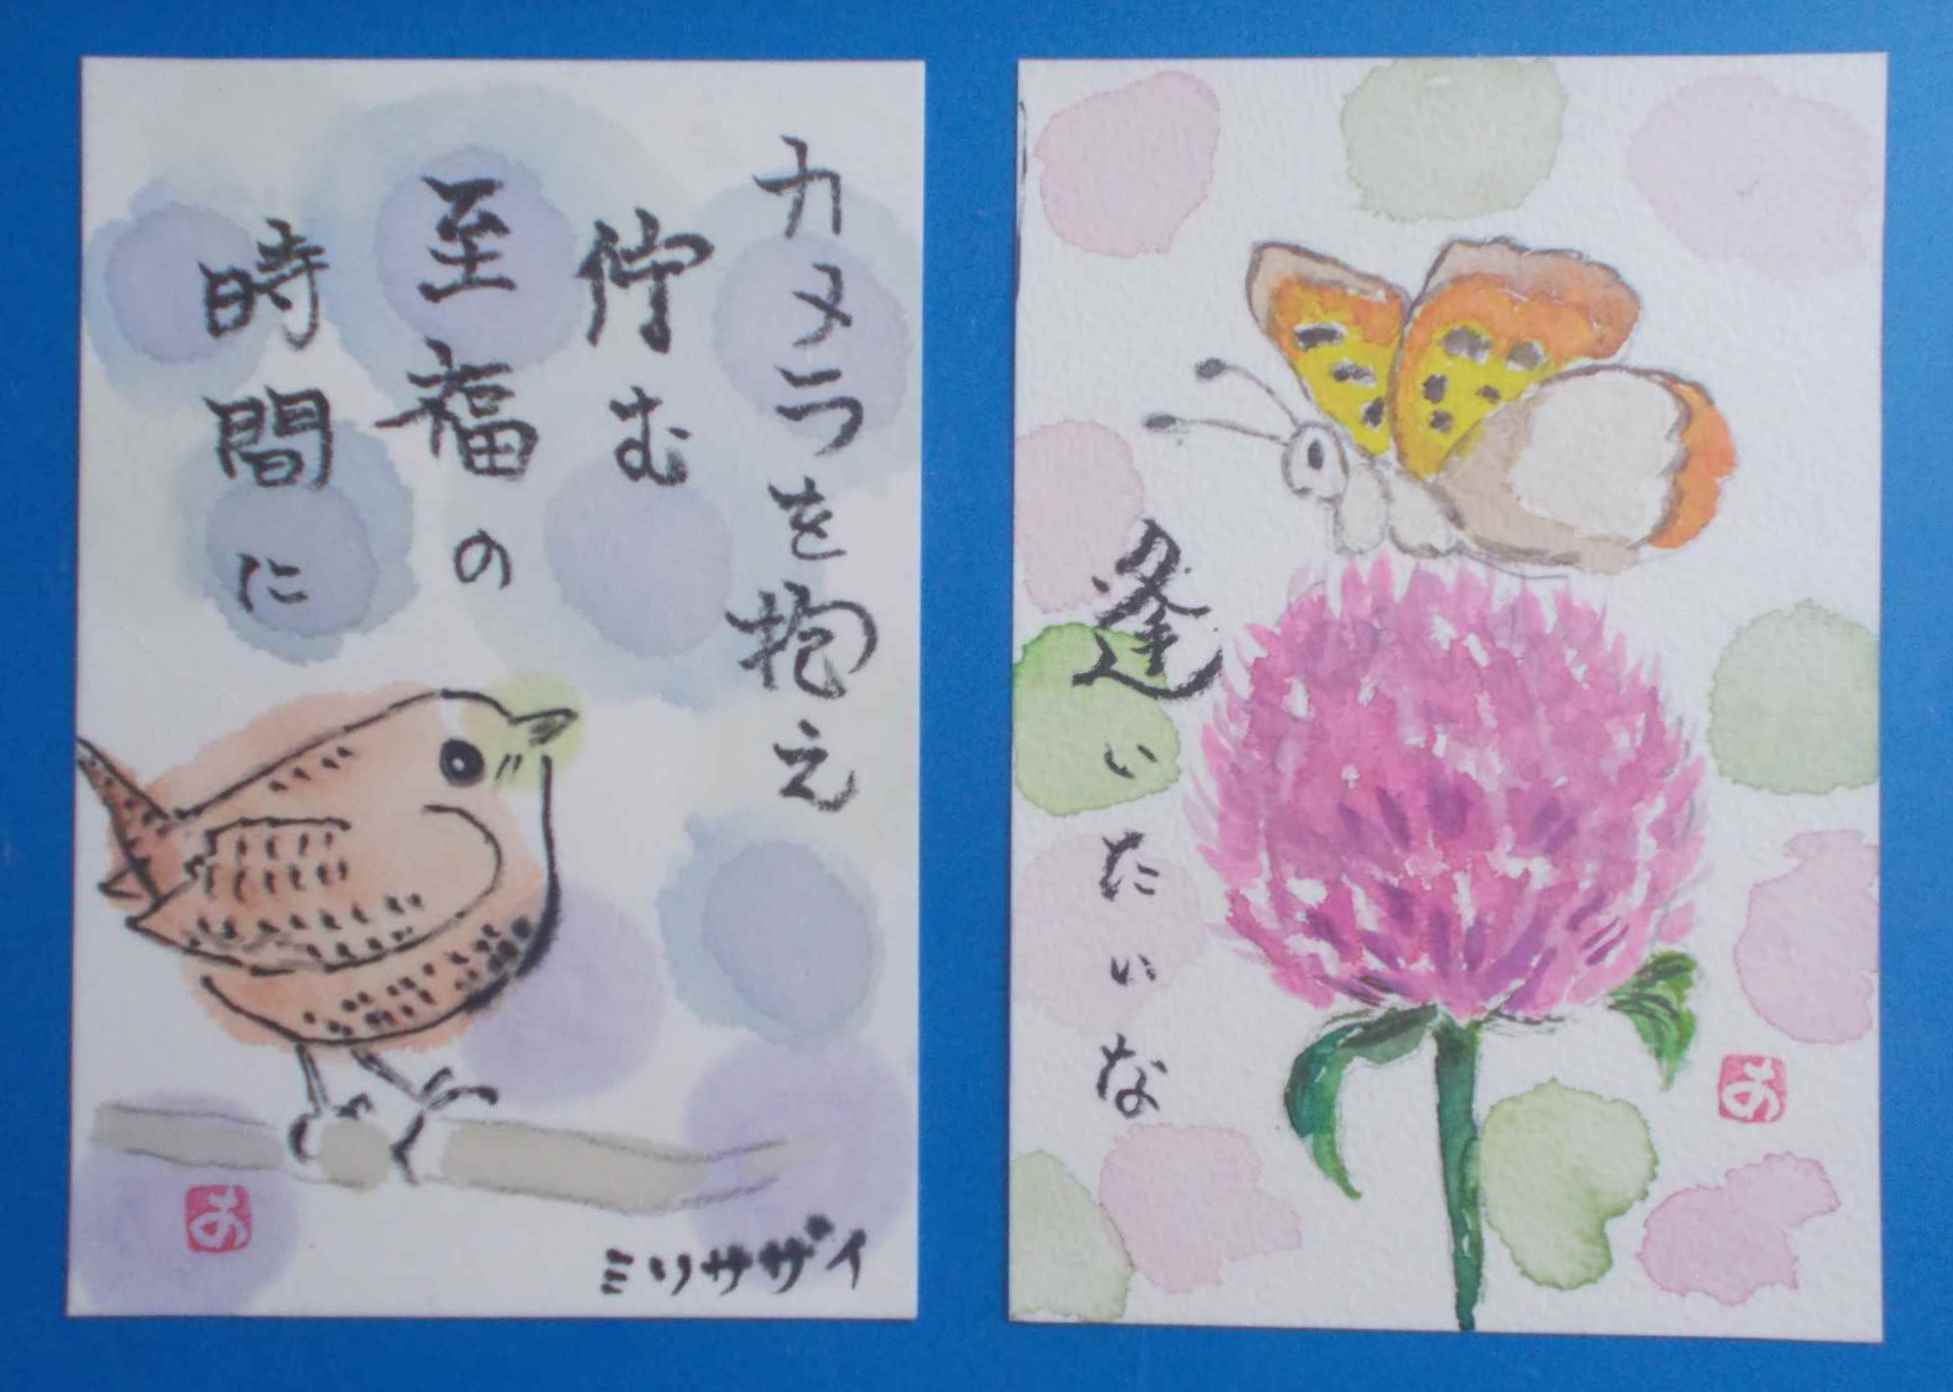 カメラを抱え
佇む
至福の
時間に
ミソサザイ
お
逢いたいな
お